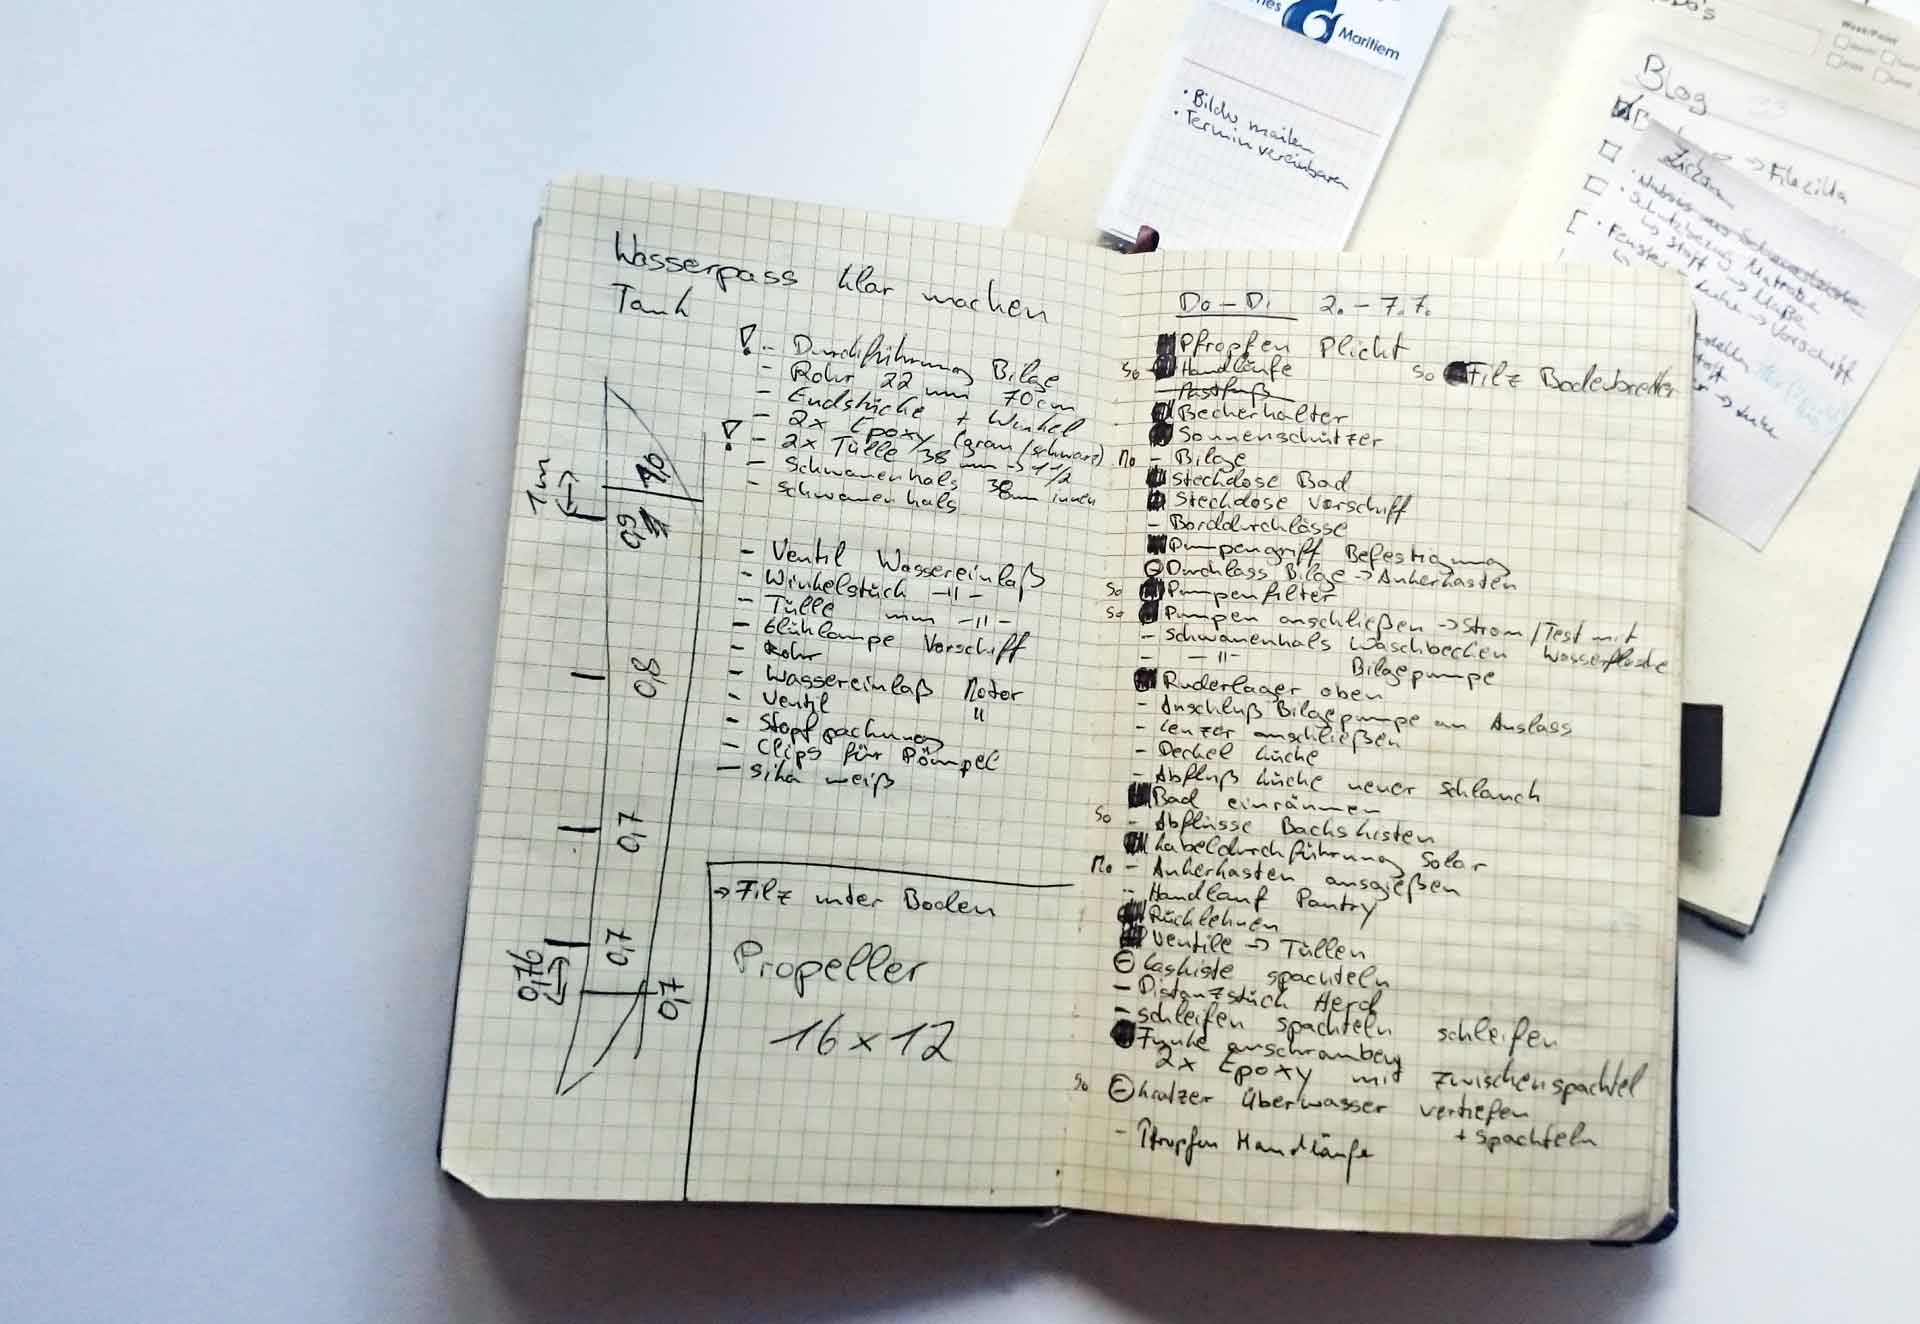 Wasserpass klar machen
Tank
! - Durchführung Bilge
- Rohr 22 mm 70cm
- Endstücke + Winkel
- 2x Epoxy (grau/schwarz)
! - 2x Tülle 38 mm -> 1 1/2
- Schwanenhals 38mm innen
- Schwanenhals
- Ventil Wassereinlaß
- Winkelstück -"-
- Tülle mm -"-
- Glühlampe Vorschiff
- Rohr
- Wassereinlaß Motor
- Ventil "
- Stopfpackung
- Clips für Pömpel
- Sika weiß
1m
1,0
0,9
0,8
0,7
0,7
0,76
0,7
-> Filz unter Boden
Propeller
16 x 12
Do - Di 2. - 7.7.
Pfropfen Plicht
So Handläufe
So Filz Bodenbretter
- Mastfuß
Becherhalter
Sonnenschützer
Mo - Bilge
Steckdose Bad
Steckdose Vorschiff
- Borddurchlässe
Pumpengriff Befestigung
Durchlass Bilge -> Ankerkasten
So Pumpenfilter
So Pumpen anschließen -> Strom/Test mit
Wasserflasche
- Schwanenhals Waschbecken
- -"- Bilgepumpe
Ruderlager oben
- Anschluß Bilgepumpe an Auslass
- Lenzer anschließen
- Deckel Küche
- Abfluß Küche neuer Schlauch
Bad einräumen
So - Abflüsse Backskisten
Kabeldurchführung Solar
Mo - Ankerkasten ausgießen
- Handlauf Pantry
Rücklehnen
Ventile -> Tüllen
Gaskiste spachteln
- Distanzstück Herd
- schleifen spachteln schleifen
Funke anschrauben
2x Epoxy mit Zwischenspachtel
So Kratzer Überwasser vertiefen
+ spachteln
- Pfropfen Handläufe
Maritiem
• Bilder mailen
• Termin vereinbaren
Blog
-> Filezilla